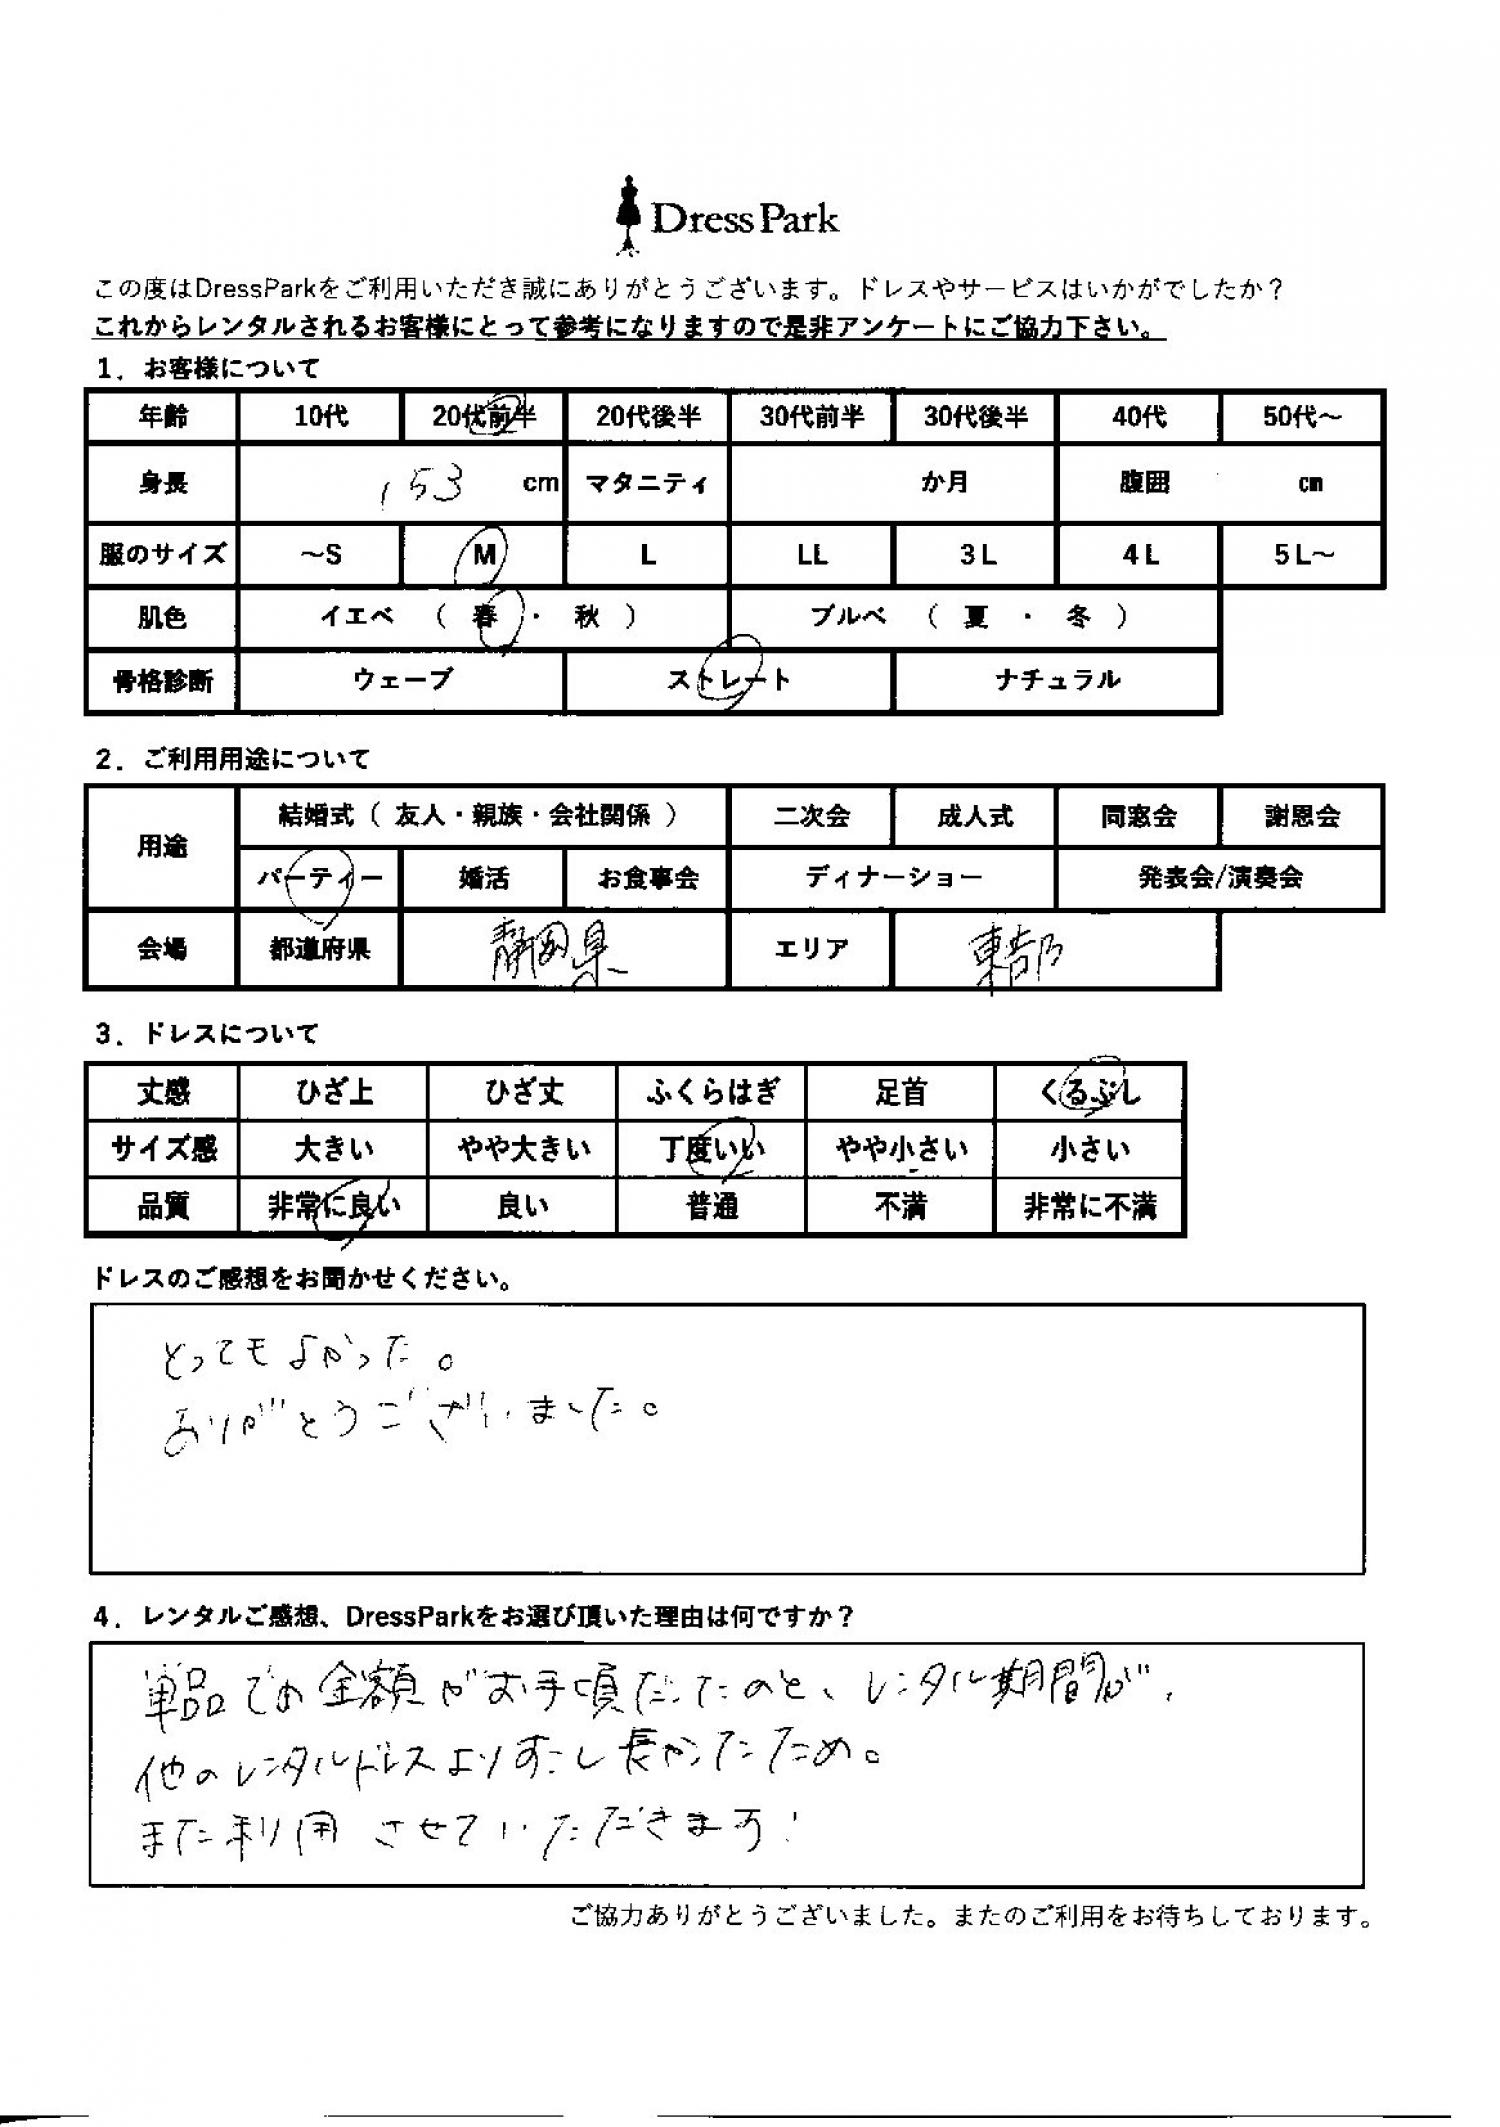 Dress Park
この度はDressParkをご利用いただき誠にありがとうございます。ドレスやサービスはいかがでしたか？
これからレンタルされるお客様にとって参考になりますので是非アンケートにご協力下さい。
1．お客様について
年齢 10代 20代前半 20代後半 30代前半 30代後半 40代 50代～
身長 153 cm マタニティ か月 腹囲 cm
服のサイズ ～S M L LL 3L 4L 5L～
肌色 イエベ （ 春 ・ 秋 ） ブルベ （ 夏 ・ 冬 ）
骨格診断 ウェーブ ストレート ナチュラル
2．ご利用用途について
用途 結婚式（ 友人・親族・会社関係 ） 二次会 成人式 同窓会 謝恩会
パーティー 婚活 お食事会 ディナーショー 発表会/演奏会
会場 都道府県 静岡県 エリア 東部
3．ドレスについて
丈感 ひざ上 ひざ丈 ふくらはぎ 足首 くるぶし
サイズ感 大きい やや大きい 丁度いい やや小さい 小さい
品質 非常に良い 良い 普通 不満 非常に不満
ドレスのご感想をお聞かせください。
とってもよかった。
ありがとうございました。
4．レンタルご感想、DressParkをお選び頂いた理由は何ですか？
単品での金額がお手頃だったのと、レンタル期間が、
他のレンタルドレスよりすこし長かったため。
また利用させていただきます！
ご協力ありがとうございました。またのご利用をお待ちしております。